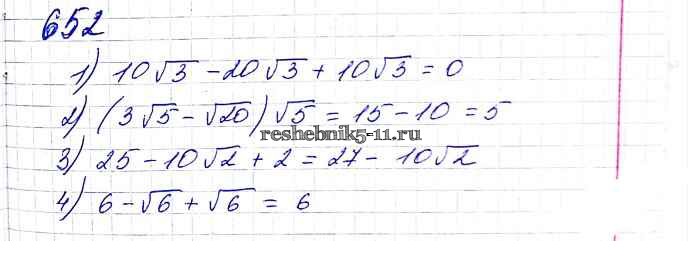 652
1) 10√3 - 20√3 + 10√3 = 0
2) (3√5 - √20)√5 = 15 - 10 = 5
reshebnik5-11.ru
3) 25 - 10√2 + 2 = 27 - 10√2
4) 6 - √6 + √6 = 6